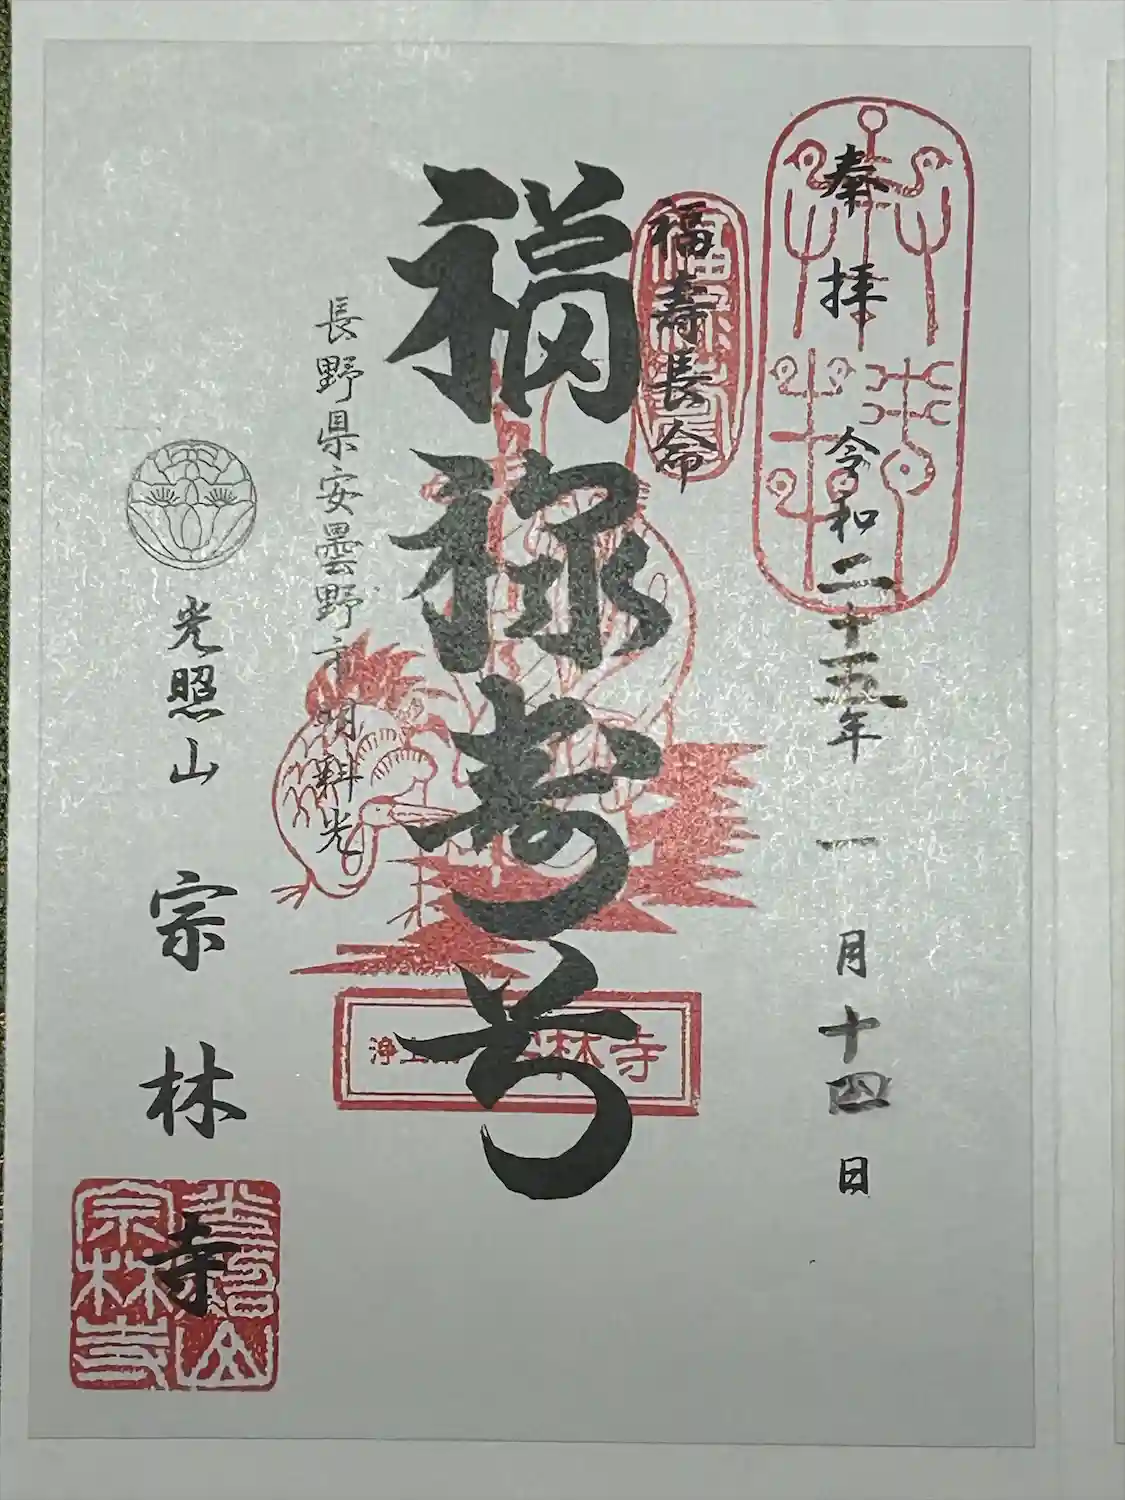 奉拝 令和二十五年一月十四日
福寿長命
福禄寿号
長野県安曇野市明科光
浄土宗 宗林寺
光照山 宗林寺
光照山
宗林寺